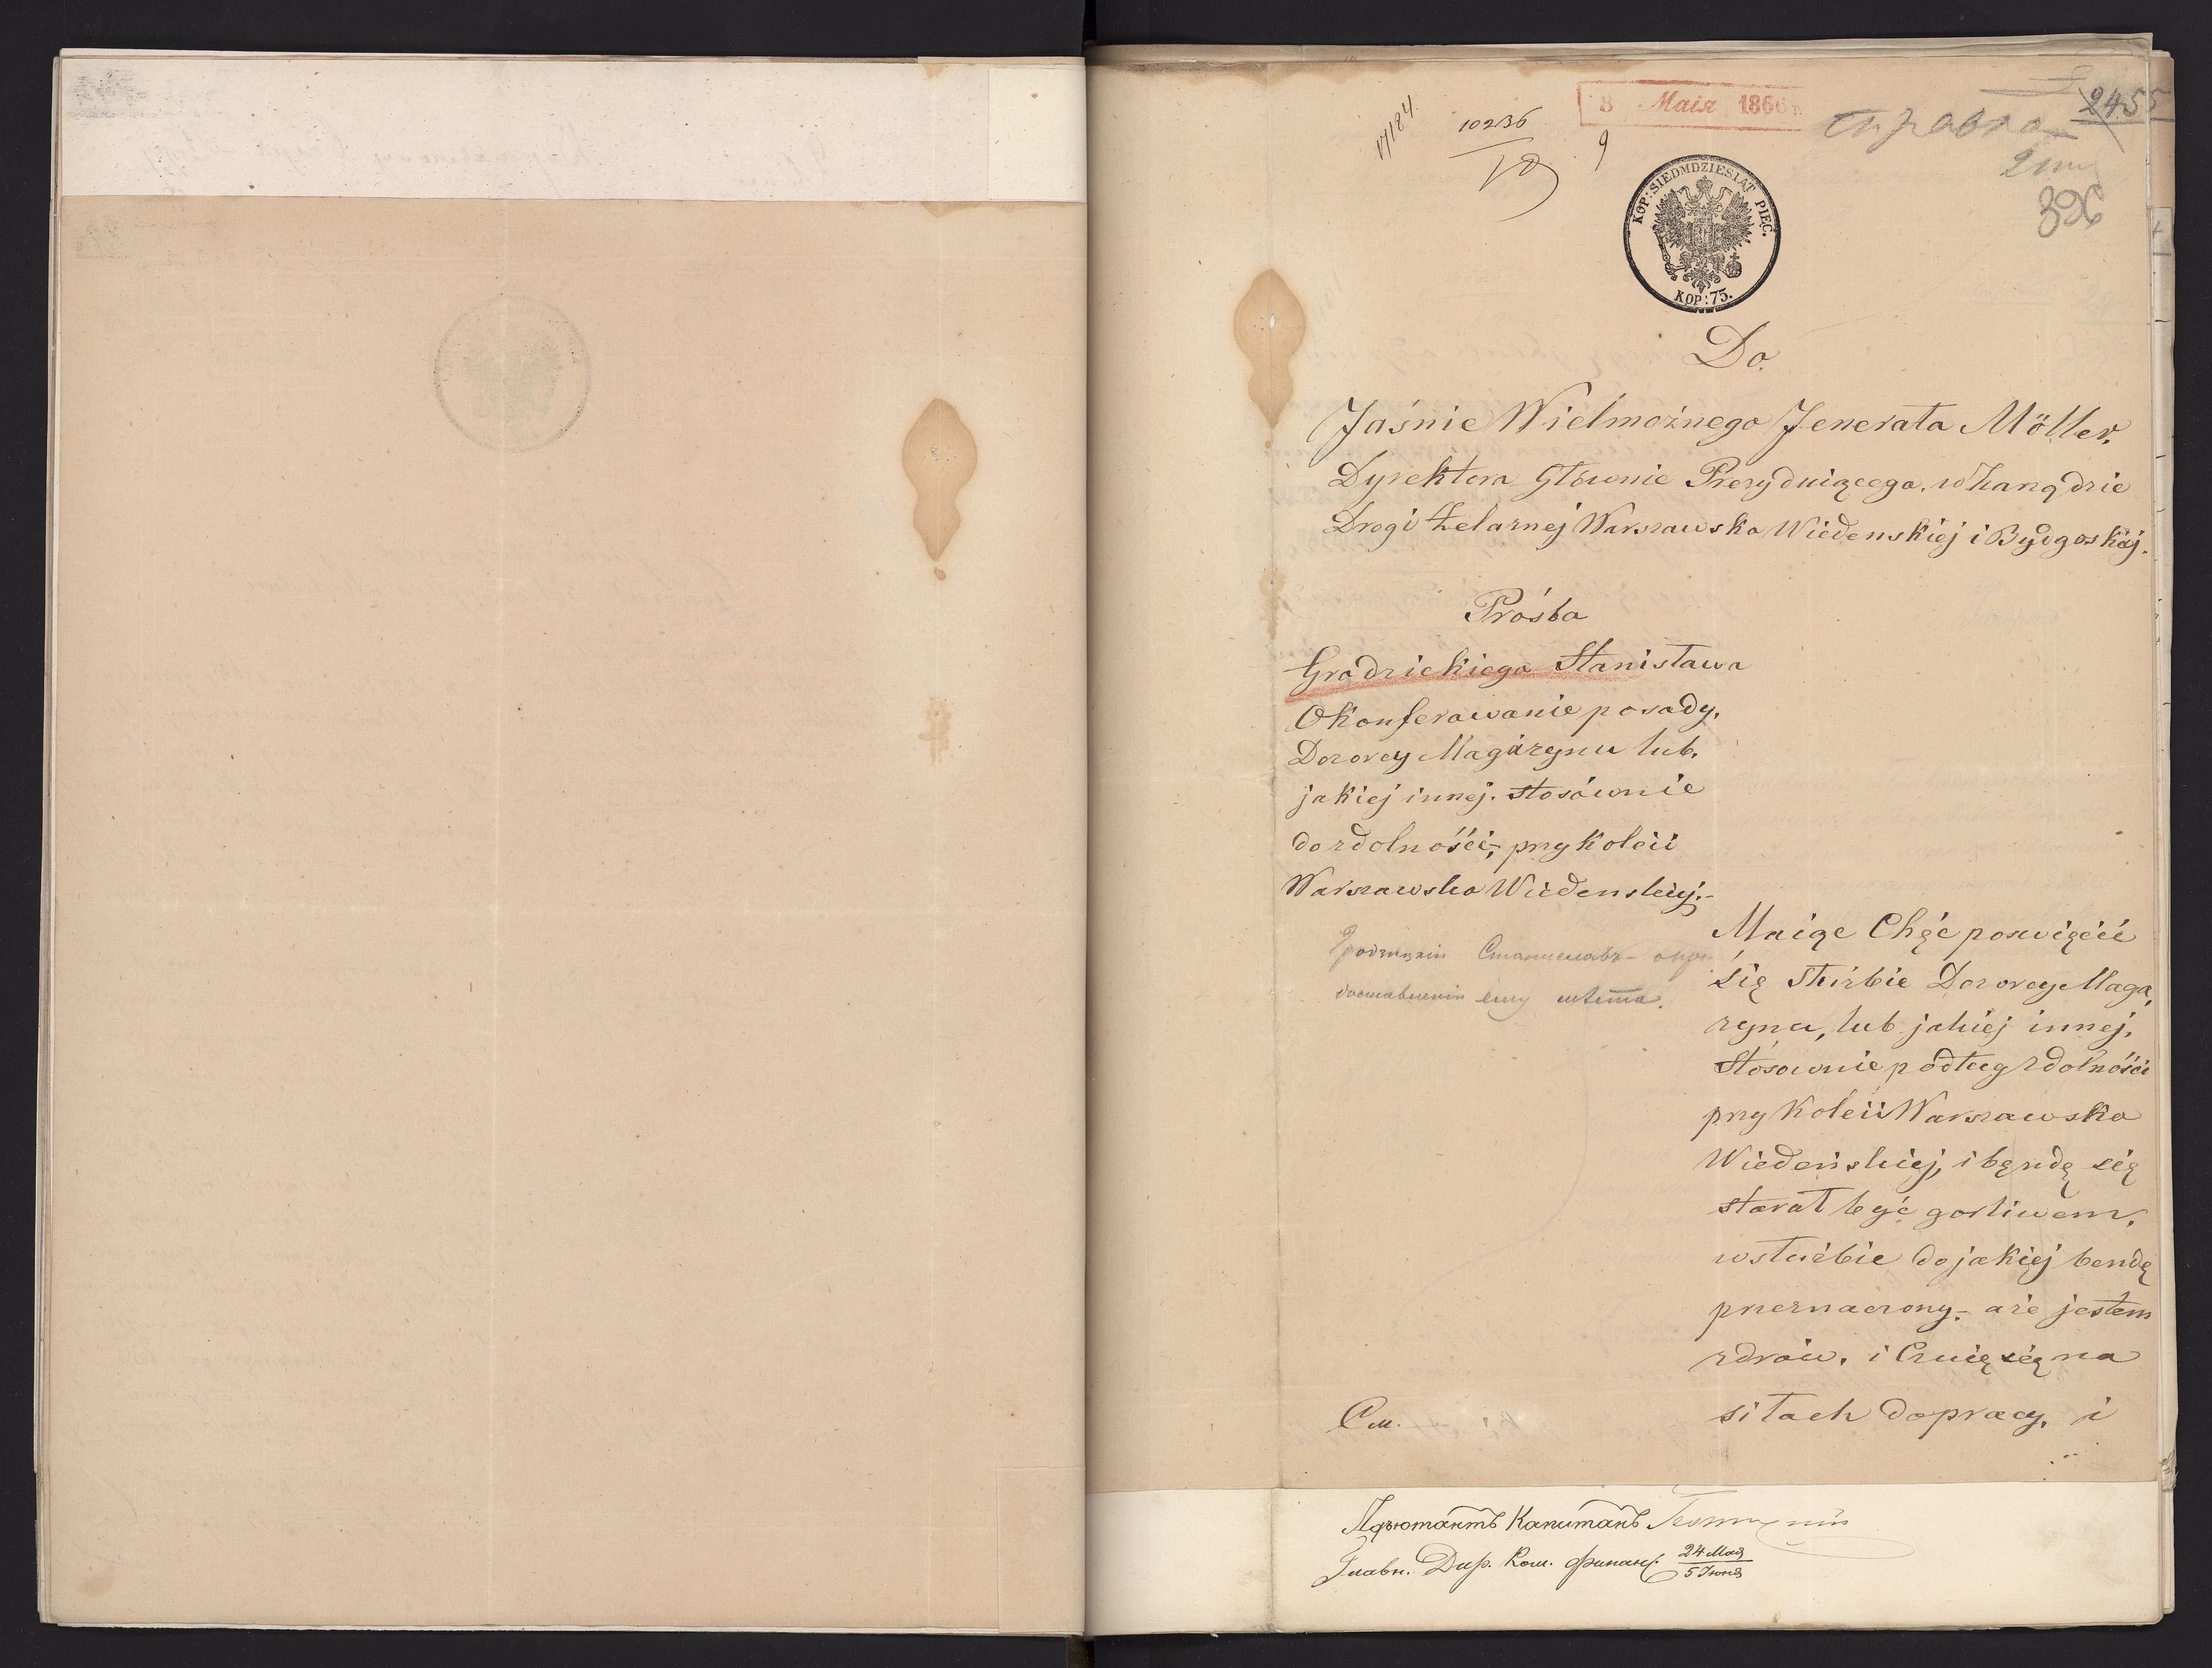 17184
10236
8 Мая 1866
9
справка
245
2 тт
396
KOP: SIEDMDZIESIAT PIĘC.
KOP: 75.
Do.
Jaśnie Wielmożnego Jenerała Möller,
Dyrektora Głównie Prezyduiącego, w Zarządzie
Drogi Żelaznej Warszawsko Wiedenskiej i Bydgoskiej.
Prośba
Grodzickiego Stanisława
O Konferowanie posady,
Dozorcy Magazynu lub,
jakiej innej. stosównie
do zdolnośći, przy Koleii
Warszawsko Wiedenskiej.-
Гродзицкій Станиславъ -
доставленіи ему мѣста.
Maiąc Chęć poswięcić
się służbie Dozorcy Maga,
zynu, lub jakiej innej,
Stósownie podług zdolnośći
przy Koleii Warszawsko
Wiedeńskiej, i bęndę się
starał być gorliwem,
w służbie do jakiej bendę
przeznaczony,- a że jestem
zdrów, i Czuię się na
siłach do pracy, i
См.
Адъютантъ Капитанъ
Главн. Дир. Ком. Финанс. 24 Мая
5 Іюня